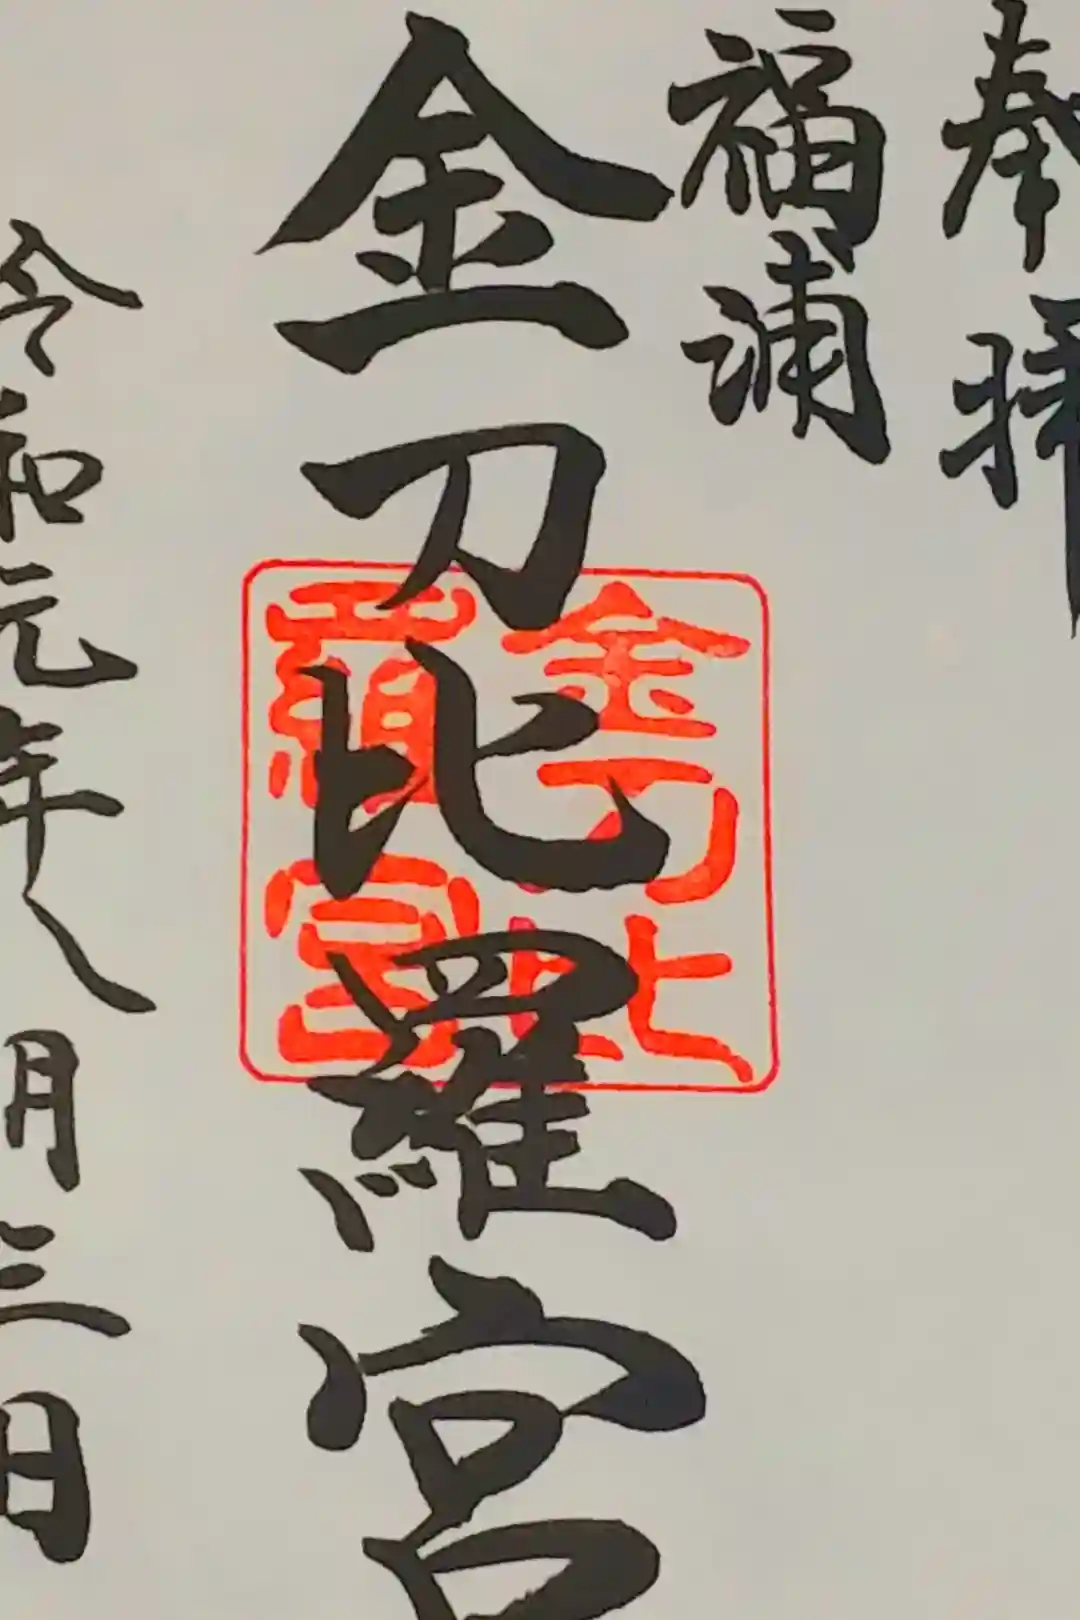 奉拝
福浦
金刀比羅宮
金刀比
羅宮
令和元年八月三日